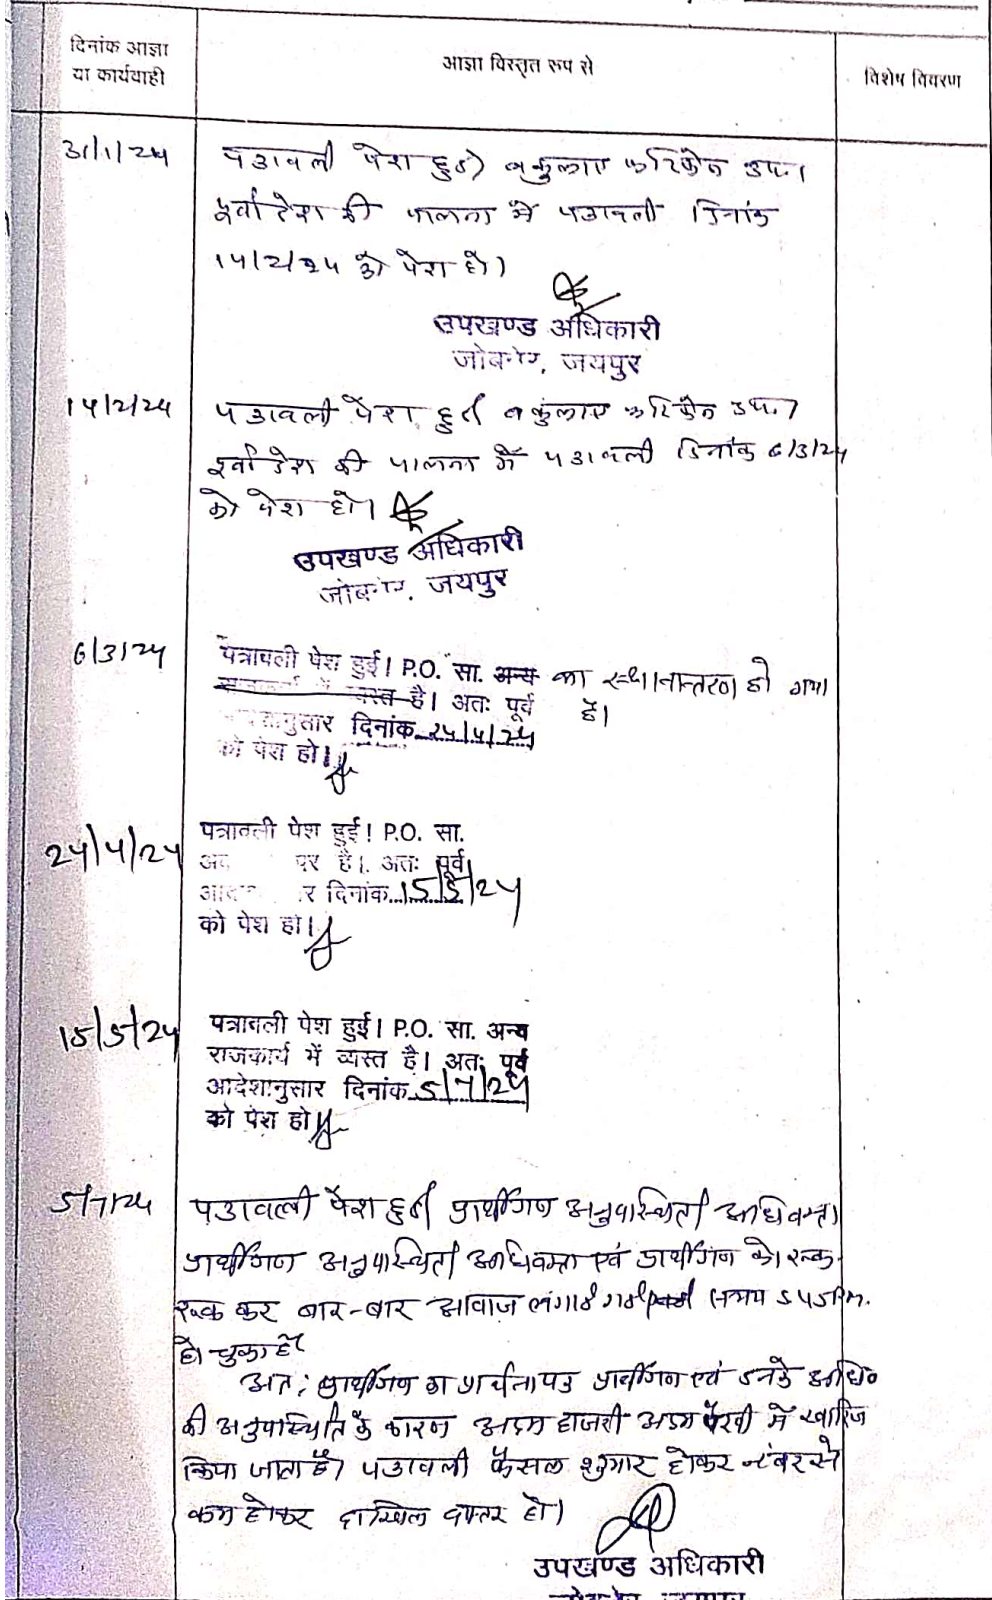 दिनांक आज्ञा
या कार्यवाही
आज्ञा विस्तृत रूप से
विशेष विवरण
31/1/24
पत्रावली पेश हुई। वकुलाए फरिकेन उप.।
पूर्वादेश की पालना में पत्रावली दिनांक
14/2/24 को पेश हो।
उपखण्ड अधिकारी
जोबनेर, जयपुर
14/2/24
पत्रावली पेश हुई वकुलाए फरिकेन उप.।
पूर्वादेश की पालना में पत्रावली दिनांक 6/3/24
को पेश हो।
उपखण्ड अधिकारी
जोबनेर, जयपुर
6/3/24
पत्रावली पेश हुई। P.O. सा. अन्य का स्थानान्तरण हो गया
व्यस्त है। अतः पूर्व है।
दिनांक 24/4/24
को पेश हो।
24/4/24
पत्रावली पेश हुई! P.O. सा.
पर है। अतः पूर्व
दिनांक 15/5/24
को पेश हो।
15/5/24
पत्रावली पेश हुई। P.O. सा. अन्य
राजकार्य में व्यस्त है। अतः पूर्व
आदेशानुसार दिनांक 5/7/24
को पेश हो
5/7/24
पत्रावली पेश हुई प्रार्थीगण अनुपस्थित। अधिवक्ता
प्रार्थीगण अनुपस्थित। अधिवक्ता एवं प्रार्थीगण को रूक-
रूक कर बार-बार आवाज लगाई गई समय 5 45 P.M.
हो चुका है
अतः प्रार्थीगण का प्रार्थना पत्र प्रार्थीगण एवं उनके अधि०
की अनुपस्थिति के कारण अदम हाजरी अदम पैरवी में खारिज
किया जाता है। पत्रावली फैसल शुमार होकर नंबर से
कम होकर दाखिल दफ्तर हो।
उपखण्ड अधिकारी